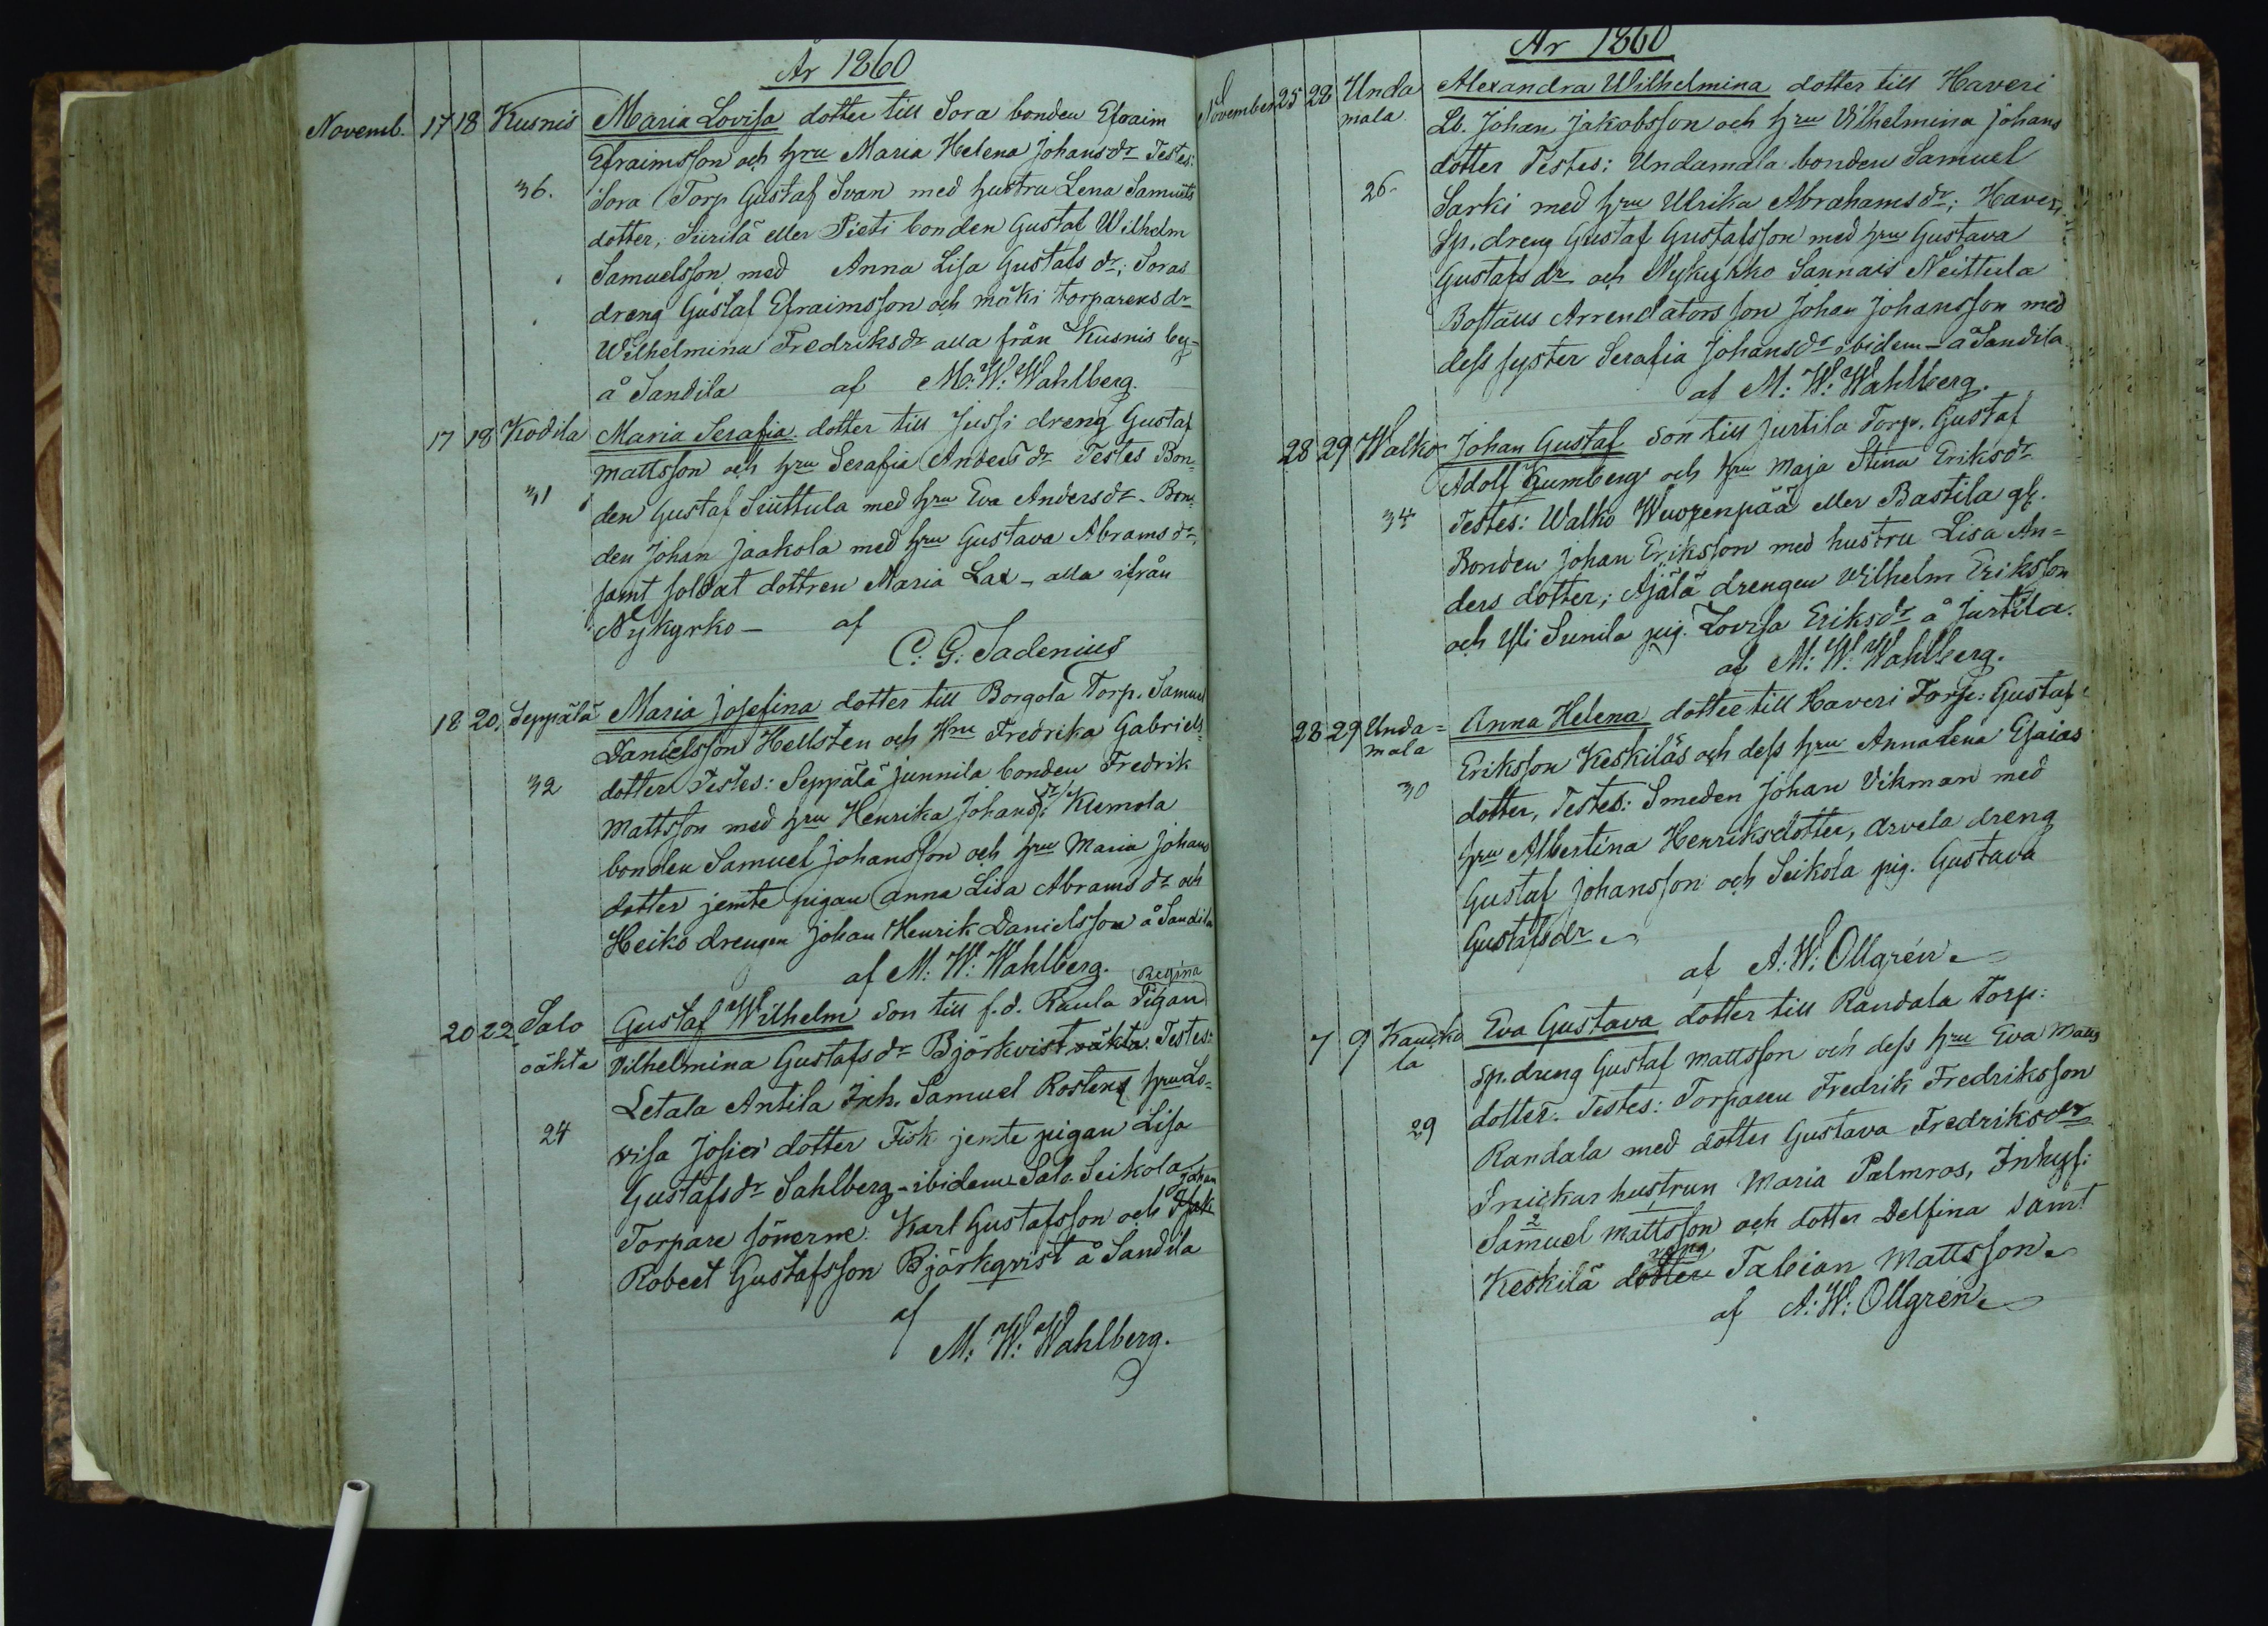 År 1860
Novemb. 17 18 Kusnis Maria Lovisa dotter till Sora bonden Efraim
Efraimsson och hru Maria Helena Johansdr Testes:
36. Sora Torp Gustaf Svan med hustru Lena Samuels
dotter, Siirilä eller Pieti bonden Gustaf Wilhelm
Samuelsson med Anna Lisa Gustafs dr; Soras
dreng Gustaf Efraimsson och mäki torparens dr
Wilhelmina Fredriksdr alla från Kusnis by-
å Sandila af M: W: Wahlberg.
17 18 Kodila Maria Serafia dotter till Jussi dreng Gustaf
Mattsson och hru Serafia Anders dr Testes Bon-
31 den Gustaf Siuttula med hru Eva Andersdr. Bon-
den Johan Jaakola med hru Gustava Abramsdr,
samt soldat dottren Maria Lax - alla ifrån
Nykyrko - af
C: G: Sadenius
18 20. Seppälä Maria Josefina dotter till Borgola Torp. Samuel
Danielsson Hellsten och Hru Fredrika Gabriels-
32 dotter Testes: Seppälä Junnila bonden Fredrik
Mattsson med hru Henrika Johans dr; Kumola
bonden Samuel Johansson och hru Maria Johans
dotter jemte pigan Anna Lisa Abrams dr och
Heiko drengen Johan Henrik Danielsson å Sandila
af M: W: Wahlberg.
Regina
20 22 Salo Gustaf Wilhelm son till f.d. Raula Pigan
oäkta Vilhelmina Gustafs dr Björkvist oäkta. Testes:
Letala Antila Inh. Samuel Rostens hru Lo-
24 visa Josias dotter Fisk jemte pigan Lisa
Gustafs dr Sahlberg - ibidem Salo. Seikola
Johan
Torpare sönerne: Karl Gustafsson och Isak
Robert Gustafsson Björkqvist å Sandila
af
M: W: Wahlberg.
År 1860
November 25 28 Unda Alexandra Wilhelmina dotter till Haveri
mala Lb. Johan Jakobsson och hru Vilhelmina Johans
dotter Testes: Undamala bonden Samuel
26 Sarki med hru Ulrika Abrahamsdr; Haveri
Sp. dreng Gustaf Gustafsson med hru Gustava
Gustafs dr och Nykyrko Sannais Neittula
Boställs Arrendators son Johan Johansson med
dess syster Serafia Johansdr ibidem - å Sandila
af M: W: Wahlberg.
28 29 Walko Johan Gustaf son till Jurtila Torp. Gustaf
Adolf Kumberg och hru Maja Stina Eriksdr
34 Testes: Walko Wuorenpää eller Bastila gl.
Bonden Johan Eriksson med hustru Lisa An=
ders dotter; Äjälä drengen Wilhelm Eriksson
och Yli Sunila pig. Lovisa Eriksdr å Jurtila.
af M: W: Wahlberg.
28 29 Unda= Anna Helena dotter till Haveri Torp: Gustaf
mala Eriksson Keskiläs och dess hru Annalena Esaias
30 dotter, Testes: Smeden Johan Vikman med
hru Albertina Henriksdotter, Arvela dreng
Gustaf Johansson och Seikola pig. Gustava
Gustafsdr
af A: W: Ollgrén
7 9 Kaukko Eva Gustava dotter till Randala Torp:
la sp. dreng Gustaf Mattsson och dess hru Eva Matts
29 dotter. Testes: Torparen Fredrik Fredriksson
Randala med dotter Gustava Fredriksdr
Snickar hustrun Maria Palmros, Inhys:
Samuel Mattsson och dotter Delfina samt
Keskilä dotter Fabian Mattsson
af A: W: Ollgrén